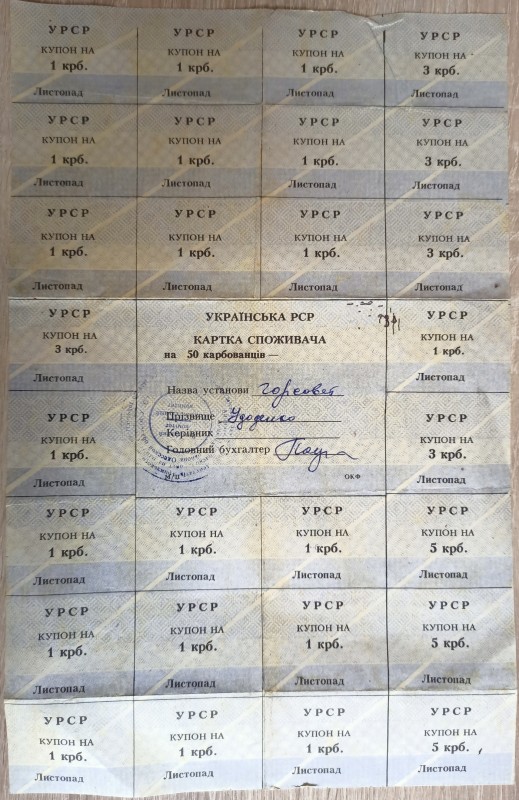 УРСР УРСР УРСР УРСР
КУПОН НА КУПОН НА КУПОН НА КУПОН НА
1 крб. 1 крб. 1 крб. 3 крб.
Листопад Листопад Листопад Листопад
УРСР УРСР УРСР УРСР
КУПОН НА КУПОН НА КУПОН НА КУПОН НА
1 крб. 1 крб. 1 крб. 3 крб.
Листопад Листопад Листопад Листопад
УРСР УРСР УРСР УРСР
КУПОН НА КУПОН НА КУПОН НА КУПОН НА
1 крб. 1 крб. 1 крб. 3 крб.
Листопад Листопад Листопад Листопад
УРСР
КУПОН НА
3 крб.
Листопад
УРСР
КУПОН НА
1 крб.
Листопад
УКРАЇНСЬКА РСР
КАРТКА СПОЖИВАЧА
на 50 карбованців —
Назва установи горсовет
Прізвище Удоденко
Керівник
Головний бухгалтер
ОКФ
УРСР
КУПОН НА
1 крб.
Листопад
УРСР
КУПОН НА
3 крб.
Листопад
УРСР УРСР УРСР УРСР
КУПОН НА КУПОН НА КУПОН НА КУПОН НА
1 крб. 1 крб. 1 крб. 5 крб.
Листопад Листопад Листопад Листопад
УРСР УРСР УРСР УРСР
КУПОН НА КУПОН НА КУПОН НА КУПОН НА
1 крб. 1 крб. 1 крб. 5 крб.
Листопад Листопад Листопад Листопад
УРСР УРСР УРСР УРСР
КУПОН НА КУПОН НА КУПОН НА КУПОН НА
1 крб. 1 крб. 1 крб. 5 крб.
Листопад Листопад Листопад Листопад